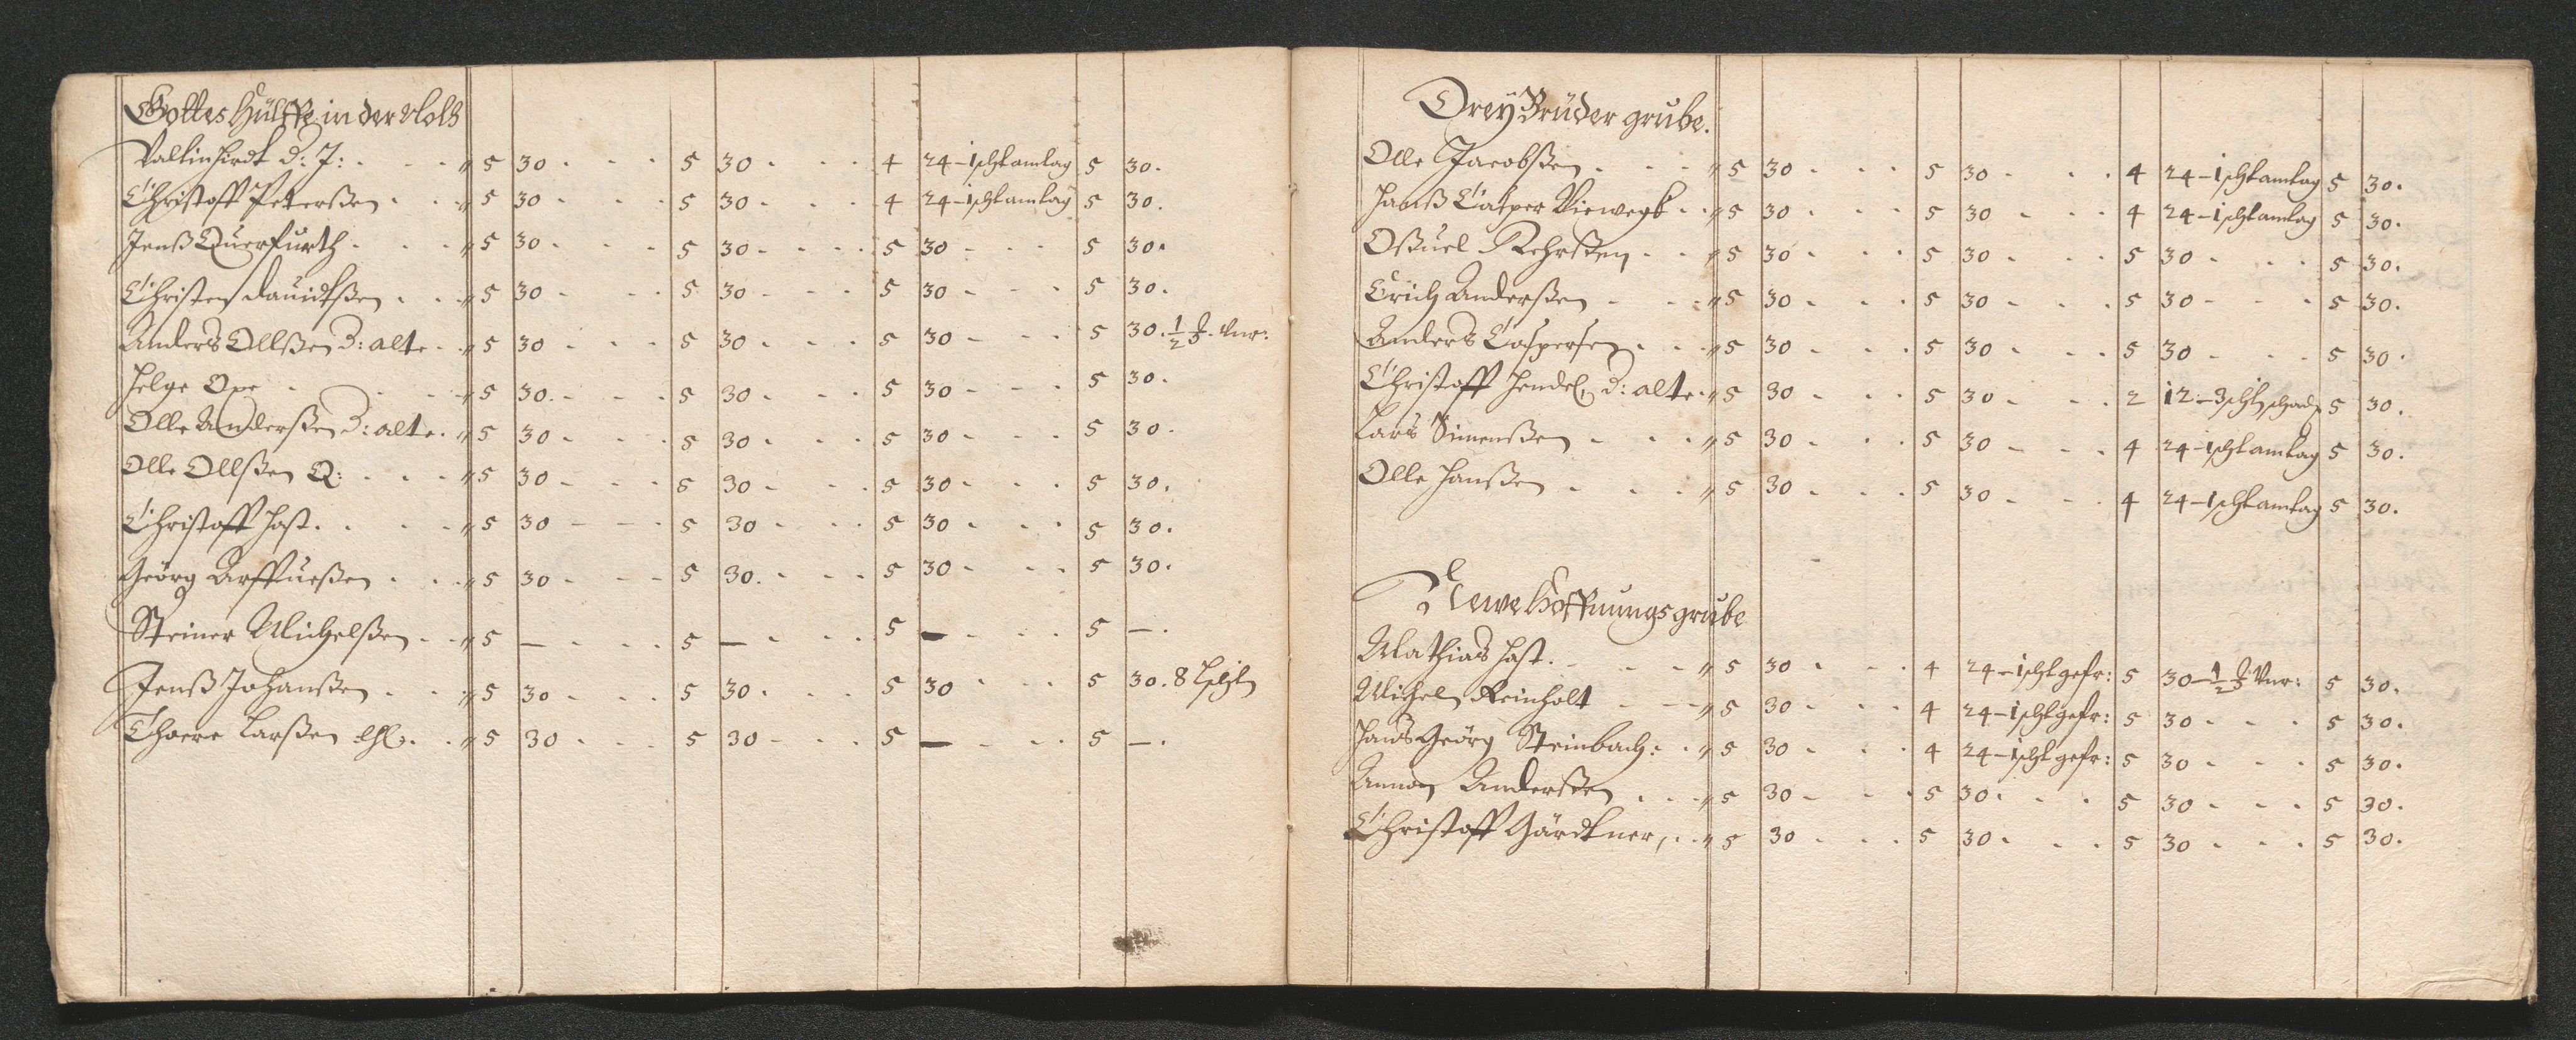 Gottes Hülffe in der Noth
Valtin hirdt d: J: . . . " 5 30 . . . 5 30 . . . 4 24 - 1 scht am tag 5 30.
Christoff Peterßen . . . " 5 30 . . . 5 30 . . . 4 24 - 1 scht am tag 5 30.
Jenß Querfurth . . . " 5 30 . . . 5 30 - . . . 5 30 - . . . 5 30.
Christen Dauidtßen . . . " 5 30 - . . 5 30 - . . . 5 30 - . . 5 30.
Anders Ollßen d: alte . . " 5 30 . . . 5 30 . . . 5 30 - . . 5 30. 1/2
Helge . . . " 5 30. - . . 5 30 . . . 5 30 - . . 5 30.
Olle Anderßen d: alte . " 5 30 - . . 5 30 . . . 5 30 - . . 5 30.
Olle Ollßen Q: . . . " 5 30 - . . 5 30 - . . 5 30 - . . 5 30.
Christoff Hast . . . " 5 30 - . . 5 30 - . . 5 30 . . . 5 30.
Geörg . . . " 5 30 - . . 5 30. - . . 5 30 - . . 5 30.
Steiner Michelßen . . " 5 — . . . 5 — . . . 5 — . . . 5 —.
Jenß Johanßen . . . " 5 30 . . . 5 30 . . . 5 30 . . . 5 30. 8
Thoere Larßen . . " 5 30 . . . 5 30 - . . 5 — . . . 5 —.
Dreÿ Brüder grube.
Olle Jacobßen . . . " 5 30 . . . 5 30 - . . 4 24 - 1 scht am tag 5 30.
Hanß Casper Viewegk . . " 5 30 . . . 5 30 - . . 4 24 - 1 scht am tag 5 30.
Oßuel Rehrßen . . " 5 30 . . . 5 30 - . . 5 30 - . . 5 30.
Erich Anderßen - . . " 5 30 . . . 5 30 - . . 5 30 - . . 5 30.
Anders Caspersen . . . " 5 30 - . . 5 30 . . . 5 30 - . . 5 30.
Christoff Hendel, d: alte . " 5 30 . . . 5 30 - . . 2 12 - 3 5 30.
Lars Simenßen - . . " 5 30 - . . 5 30 - . . 4 24 - 1 scht am tag 5 30.
Olle Hanßen . . . " 5 30 . . . 5 30 - . . 4 24 - 1 scht am tag 5 30.
Newe Hoffnungs grube
Mathias Hast . - . . " 5 30 . . . 4 24 - 1 scht gefr: 5 30 - 1/2 5 30.
Michel Reinholt - - " 5 30 . . . 4 24 - 1 scht gefr: 5 30 - . . 5 30.
Hans Geörg Steinbach: . " 5 30 . . . 4 24 - 1 scht gefr: 5 30 - . . 5 30.
Anderßen . . . " 5 30 - . . 5 30 . . . 5 30 - . . 5 30.
Christoff Gärdtner, . . " 5 30 . . . 5 30 . . . 5 30 . . . 5 30.